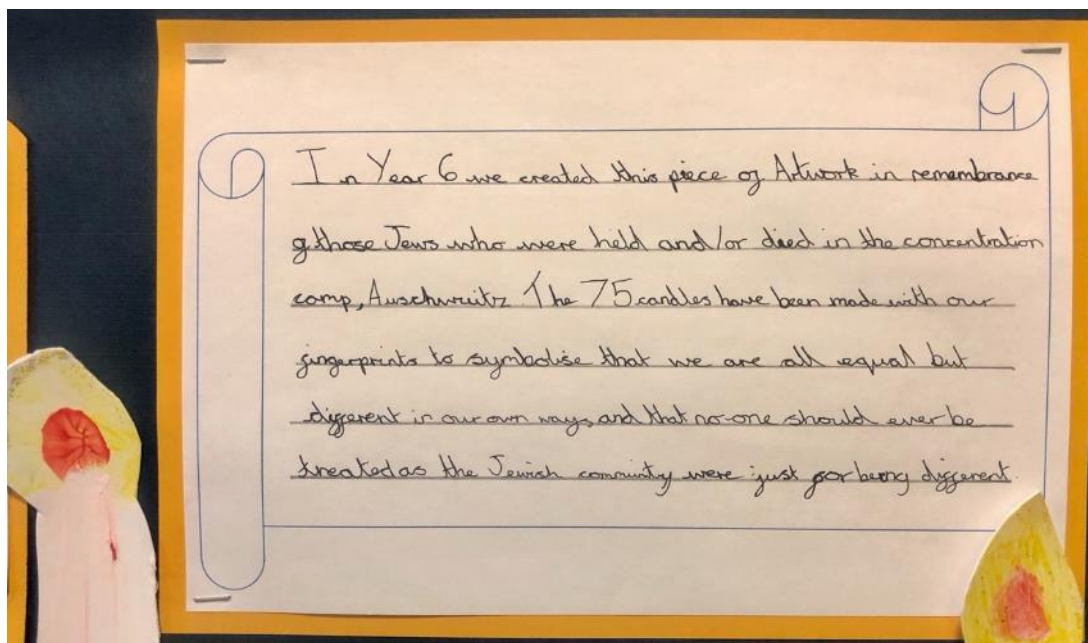 In Year 6 we created this piece of Artwork in remembrance
of those Jews who were held and/or died in the concentration
camp, Auschwitz. The 75 candles have been made with our
fingerprints to symbolise that we are all equal but
different in our own ways and that no-one should ever be
treated as the Jewish community were just for being different.